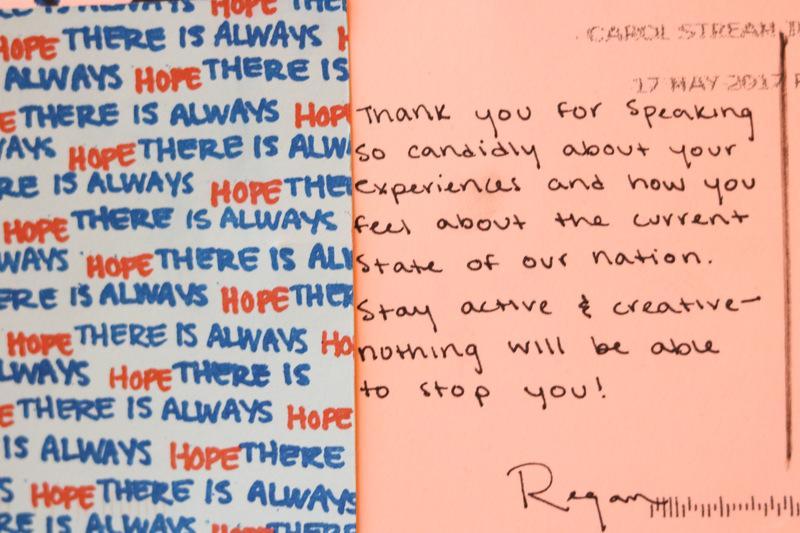 IS ALWAYS HOPE THE
HOPE THERE IS ALWAYS
ALWAYS HOPE THERE IS
E THERE IS ALWAYS HOP
WAYS HOPE THERE IS ALW
RE IS ALWAYS HOPE THE
HOPE THERE IS ALWAYS
WAYS HOPE THERE IS AL
ERE IS ALWAYS HOPE THE
HOPE THERE IS ALWAYS HO
LWAYS HOPE THERE IS
E THERE IS ALWAYS HOPE
IS ALWAYS HOPE THERE
S HOPE THERE IS ALWAYS
RE IS ALWAYS HOPE THERE
CAROL STREAM
17 MAY 2017 P
Thank you for speaking
so candidly about your
experiences and how you
feel about the current
state of our nation.
Stay active & creative-
nothing will be able
to stop you!
Regan